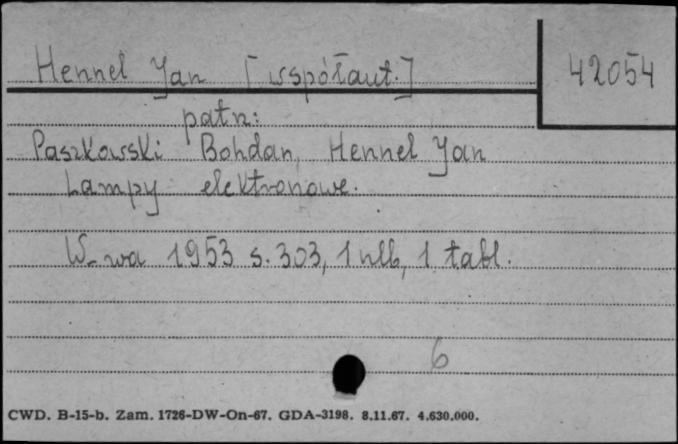 Hennel Jan [współaut.]
42054
patrz:
Paszkowski Bohdan, Hennel Jan
Lampy elektronowe.
W-wa 1953 s. 303, 1 nlb, 1 tabl.
6
CWD. B-15-b. Zam. 1726-DW-On-67. GDA-3198. 8.11.67. 4.630.000.